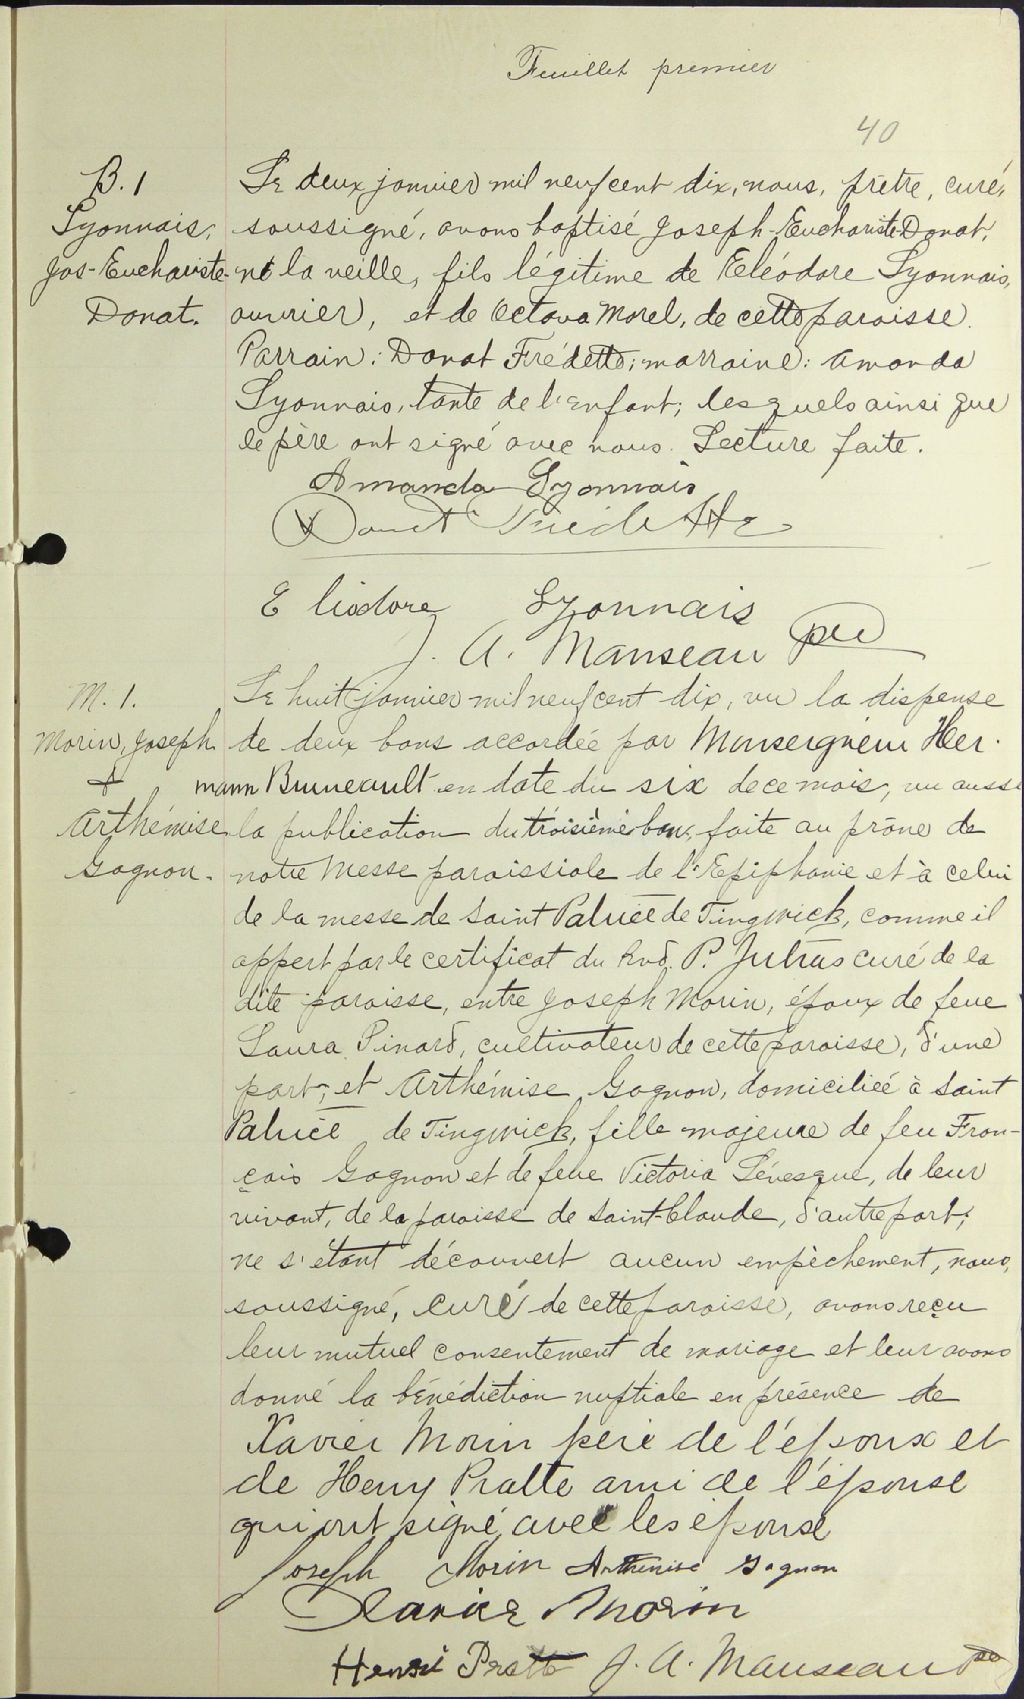 Feuillet premier
40
B. 1
Lyonnais,
Jos-Euchariste-
Donat.
Le deux janvier mil neuf cent dix, nous, prêtre, curé,
soussigné, avons baptisé Joseph-Euchariste-Donat,
né la veille, fils légitime de Eléodore Lyonnais,
ouvrier, et de Octava Morel, de cette paroisse.
Parrain: Donat Frédette; marraine: Amanda
Lyonnais, tante de l'enfant; lesquels ainsi que
le père ont signé avec nous. Lecture faite.
Amanda Lyonnais
Donat Frédette
Eliodore Lyonnais
J. A. Manseau ptre
M. 1.
Morin, Joseph
&
Arthémise
Gagnon.
Le huit janvier mil neuf cent dix, vu la dispense
de deux bans accordée par Monseigneur Her-
mann Bruneault en date du six de ce mois, vu aussi
la publication du troisième ban, faite au prône de
notre Messe paroissiale de l'Epiphanie et à celui
de la messe de Saint Patrice de Tingwick, comme il
appert par le certificat du Rvd. P. Jutras curé de la
dite paroisse, entre Joseph Morin, époux de feue
Laura Pinard, cultivateur de cette paroisse, d'une
part; et Arthémise Gagnon, domiciliée à Saint
Patrice de Tingwick, fille majeure de feu Fran-
çois Gagnon et de feue Victoria Lévesque, de leur
vivant, de la paroisse de Saint-Claude, d'autre part;
ne s'étant découvert aucun empêchement, nous,
soussigné, curé de cette paroisse, avons reçu
leur mutuel consentement de mariage et leur avons
donné la bénédiction nuptiale en présence de
Xavier Morin père de l'époux et
de Henry Pratte ami de l'épouse
qui ont signé avec les épouse
Joseph Morin Arthémise Gagnon
Xavier Morin
Henri Pratte J. A. Manseau ptre